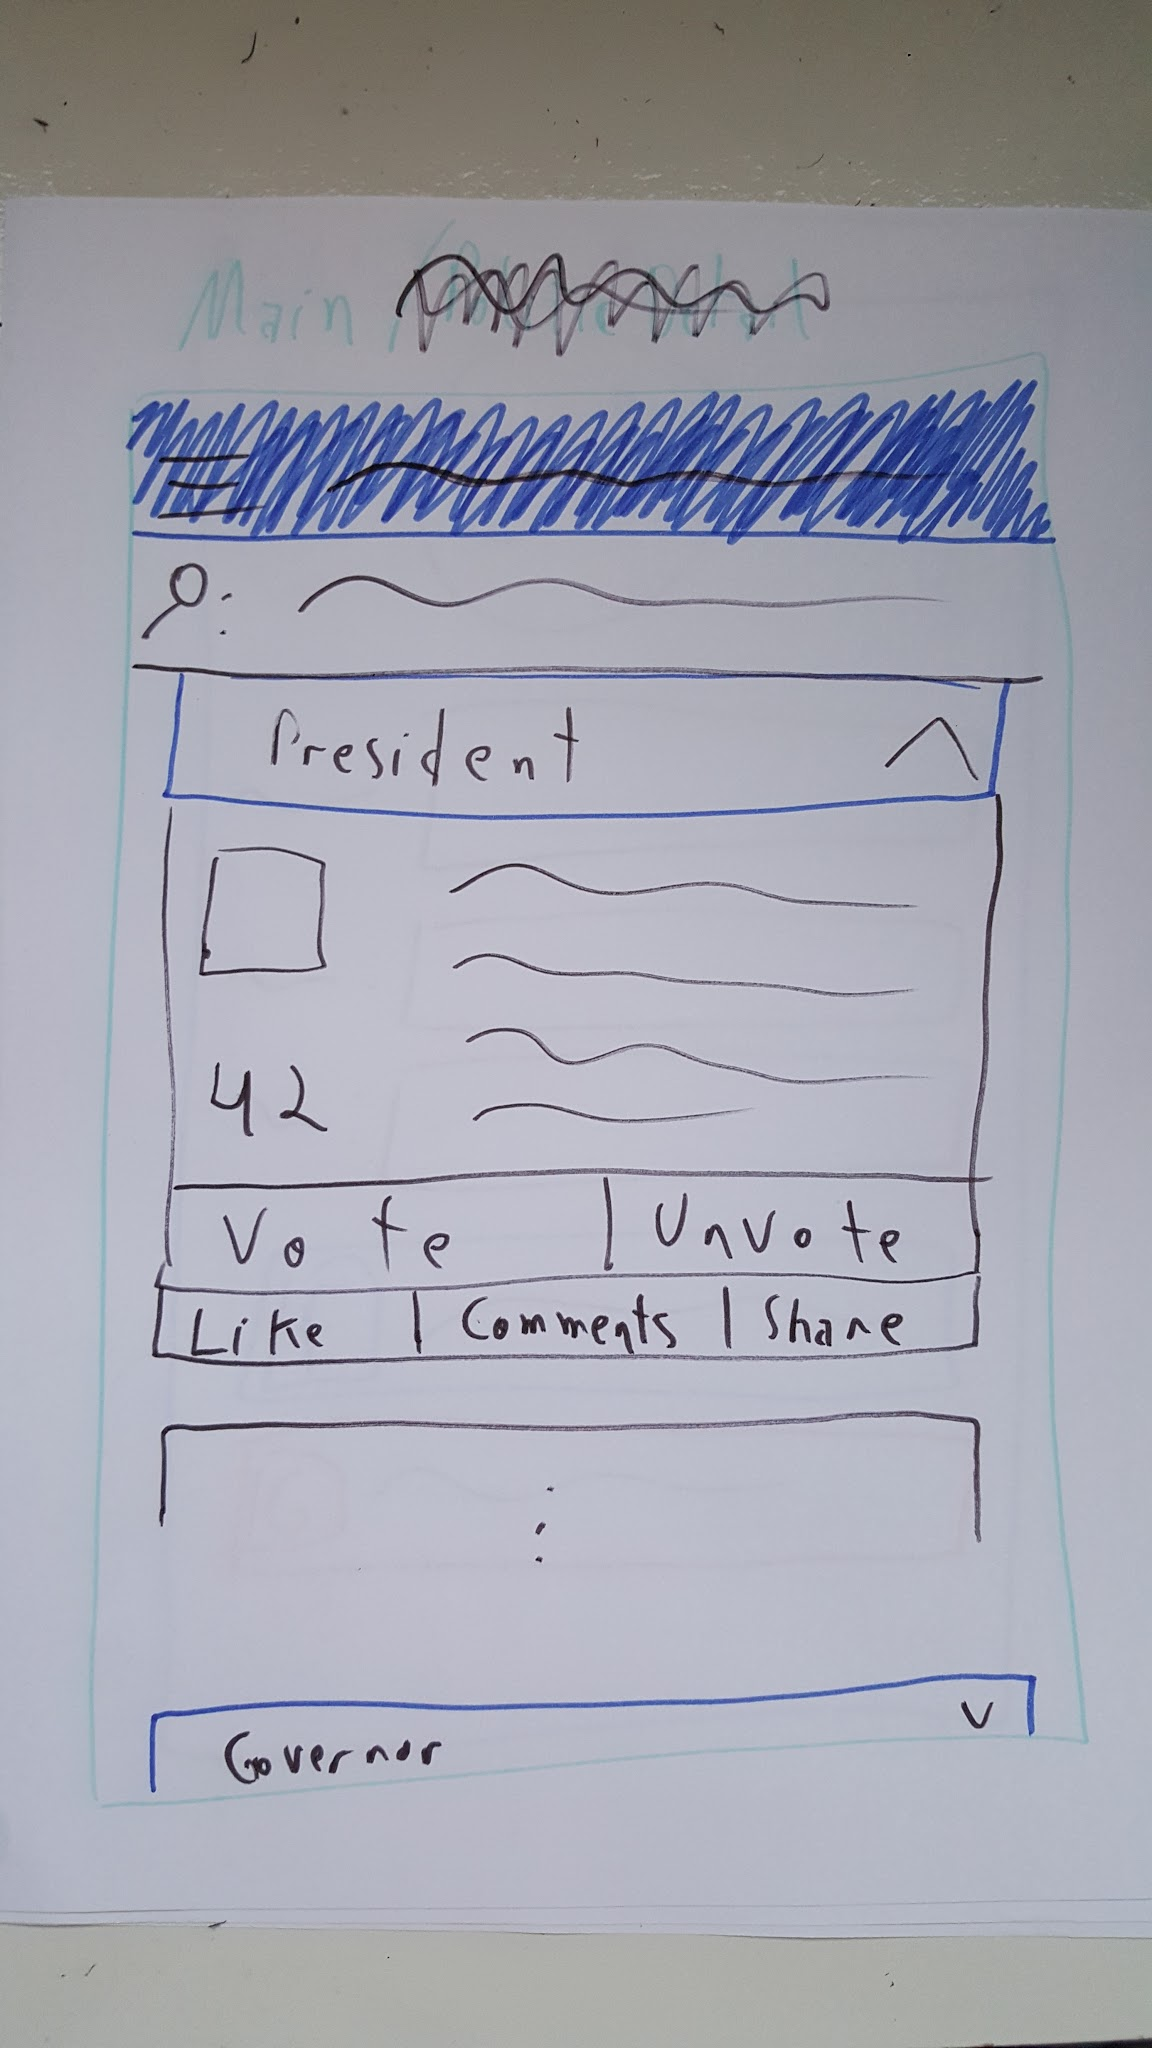 Main
President
42
Vote | Unvote
Like | Comments | Share
Governor